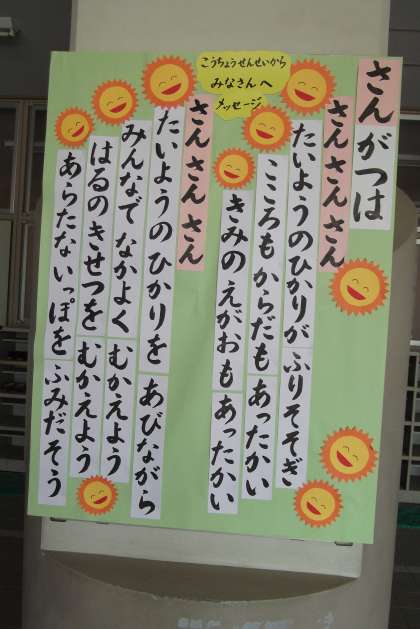 こうちょうせんせいから
みなさんへ
メッセージ
さんがつは
さんさんさん
たいようのひかりが ふりそそぎ
こころもからだも あったかい
きみのえがおも あったかい
さんさんさん
たいようのひかりを あびながら
みんなで なかよく むかえよう
はるのきせつを むかえよう
あらたないっぽを ふみだそう